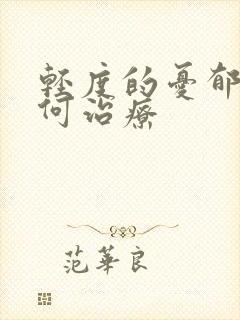 輕度的憂郁
何治療
范華良